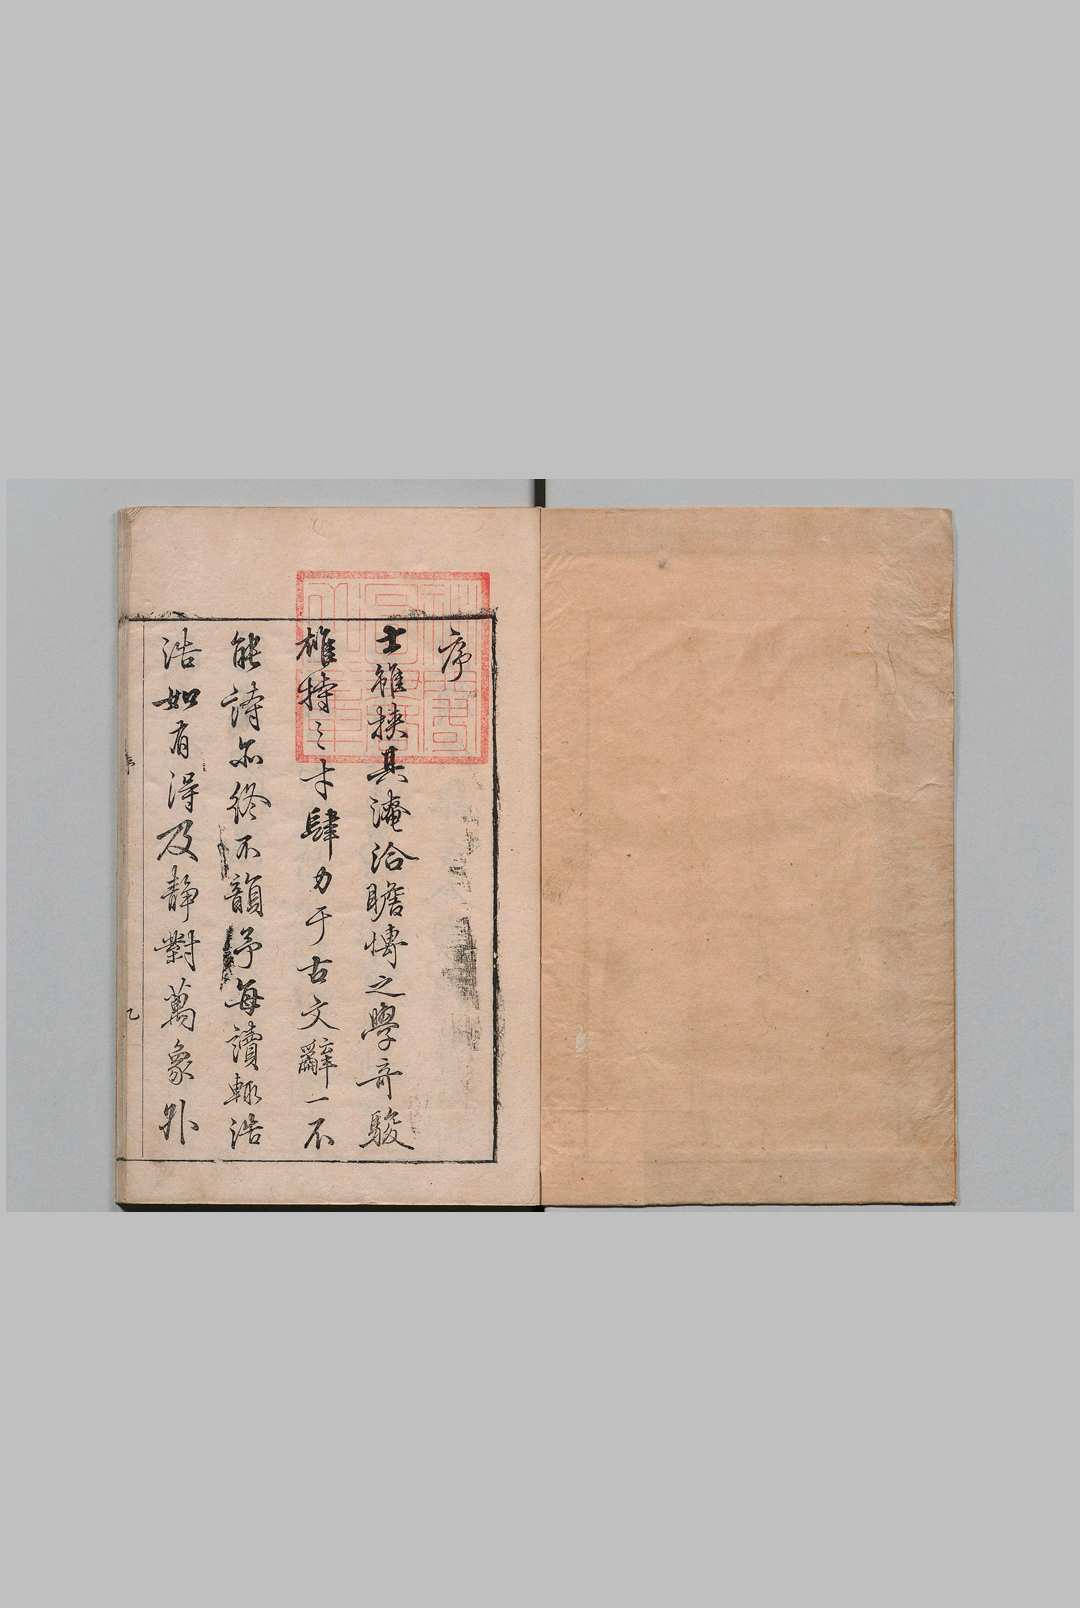 序
士雖挾其淹洽瞻愽之學奇駿
雄特之才肆力于古文辭一不
能詩亦終不韻予每讀輒浩
浩如有得及靜對萬象外
序
乙